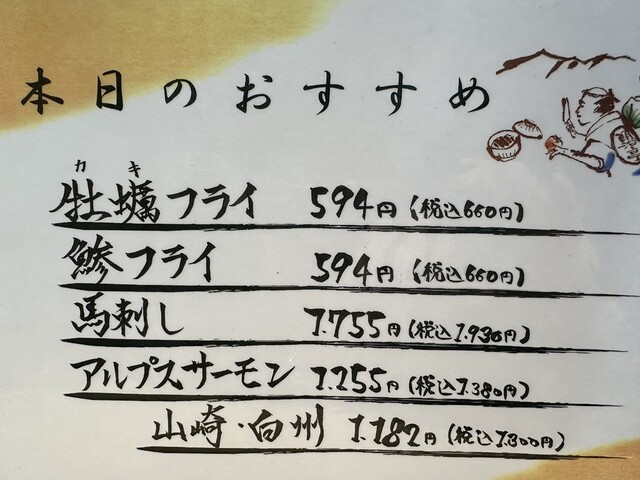 本日のおすすめ
カキ
牡蠣フライ 594円(税込660円)
鯵フライ 594円(税込660円)
馬刺し 1.755円(税込1.930円)
アルプスサーモン 1.255円(税込1.380円)
山崎・白州 1.182円(税込1.300円)